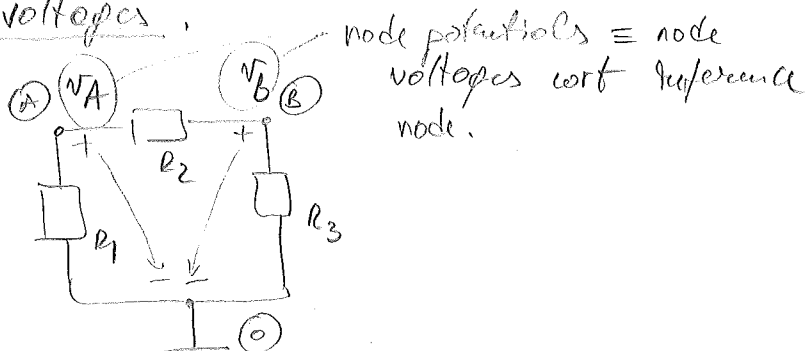 voltages.
node potentials ≡ node
voltages wrt reference
node.
A VA Vb B
+ R2 +
R1 R3
− −
0